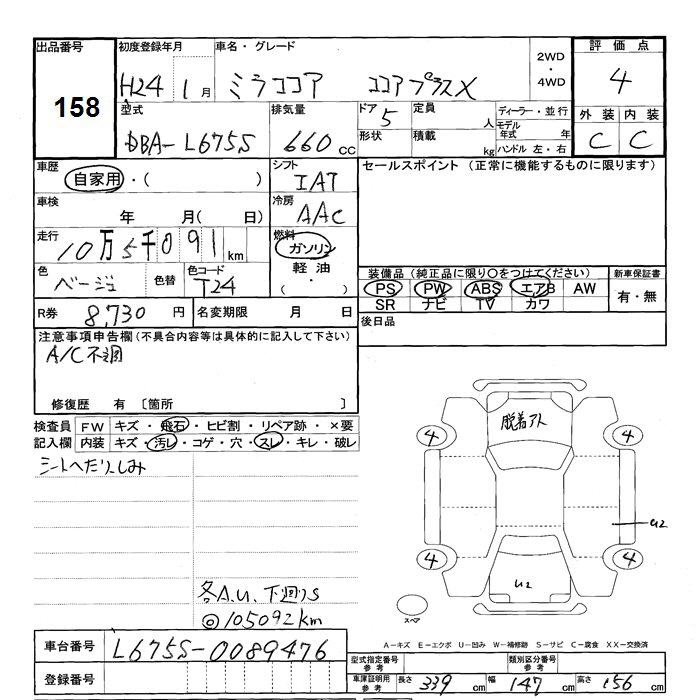 出品番号
158
初度登録年月
H24 1月
車名・グレード
ミラココア ココアプラスX
2WD
・
4WD
評価点
4
外装 内装
C C
型式
DBA-L675S
排気量
660cc
ドア
5
定員
人
形状
積載
kg
ディーラー・並行
モデル年式 年
ハンドル 左・右
車歴
自家用・( )
シフト
IAT
車検
年 月( 日)
冷房
AAC
走行
10万5千091km
燃料
ガソリン
軽油
( ・ )
色
ベージュ
色替
色コード
T24
R券 8,730円
名変期限 月 日
セールスポイント (正常に機能するものに限ります)
装備品(純正品に限り○をつけてください)
PS PW ABS エアB AW
SR ナビ TV カワ
新車保証書
有・無
後日品
注意事項申告欄(不具合内容等は具体的に記入して下さい)
A/C不調
修復歴 有 〔箇所 〕
検査員 FW キズ・飛石・ヒビ割・リペア跡・×要
記入欄 内装 キズ・汚レ・コゲ・穴・スレ・キレ・破レ
シートへたり、しみ
各A.U、下廻りS
◎105092km
脱着アト
4
4
U2
4
4
U2
スペア
A－キズ E－エクボ U－凹み W－補修跡 S－サビ C－腐食 XX－交換済
車台番号 L675S-0089476
登録番号
型式指定番号 参考
類別区分番号 参考
車庫証明用 参考 長さ 339cm 幅 147cm 高さ 156cm